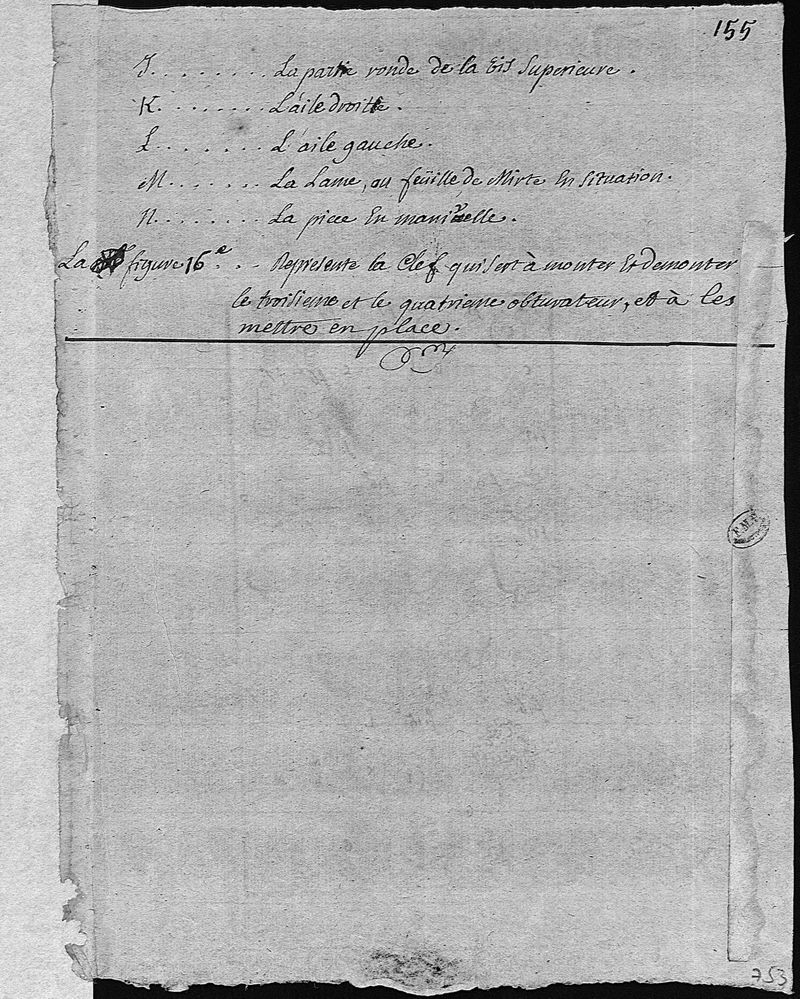 155
J........ La partie ronde de la vis Superieure.
K........ L'aile droitte.
L....... L'aile gauche.
M...... La Lame, ou feüille de Mirte En situation.
N...... La piece En manivelle.
La figure 16e... Represente la Clef qui sert à monter Et demonter
le troisieme et le quatrieme obturateur, et à les
mettre en place.
753